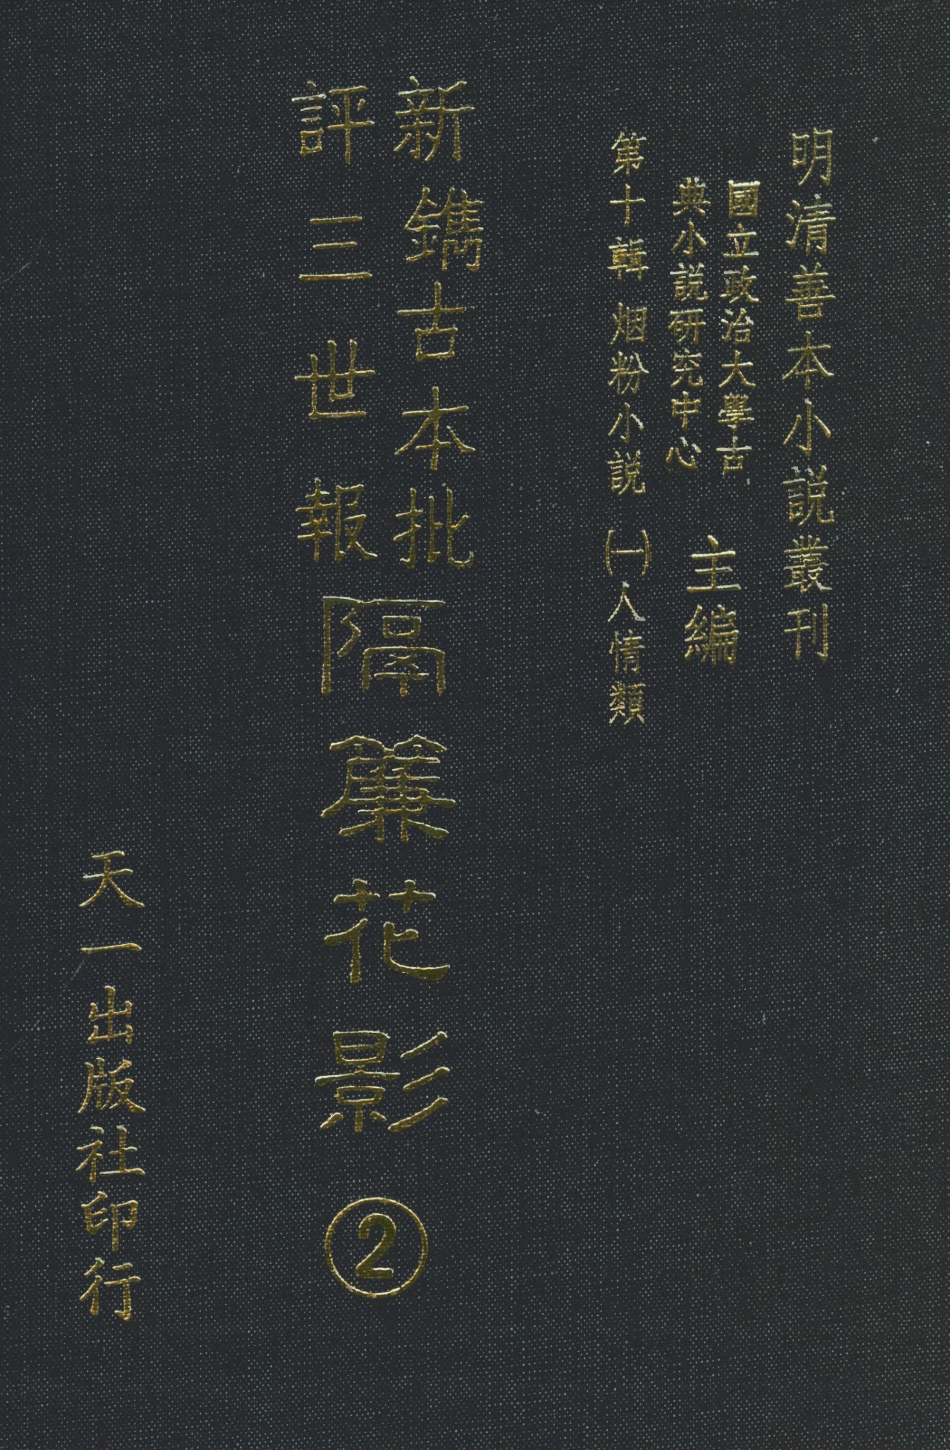 明清善本小説叢刊
國立政治大學古
典小説研究中心
主編
第十輯 烟粉小説 ㈠人情類
新鐫古本批
評三世報
隔簾花影 ②
天一出版社印行